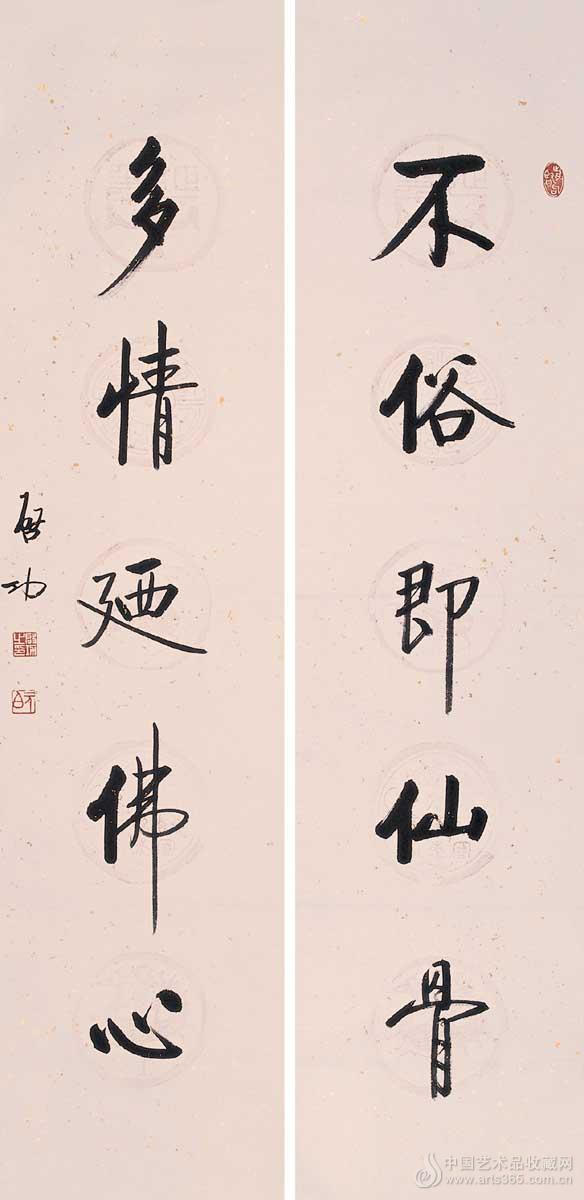 不俗即仙骨
多情廼佛心
启功
启功之印
元白
中国艺术品收藏网
www.arts365.com.cn